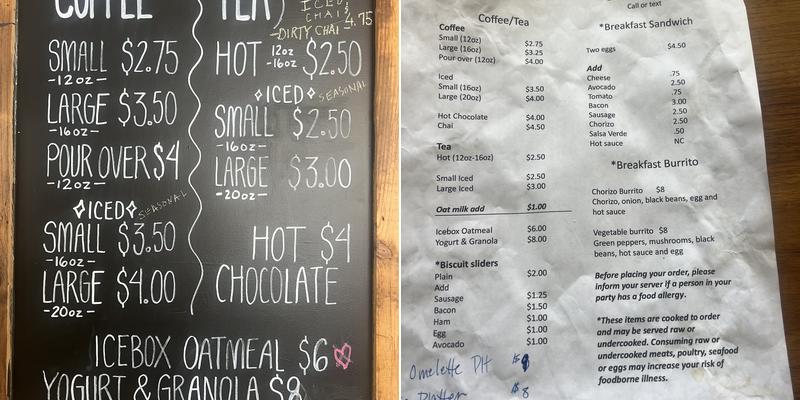 COFFEE
SMALL $2.75
-12oz-
LARGE $3.50
-16oz-
POUR OVER $4
-12oz-
ICED SEASONAL
SMALL $3.50
-16oz-
LARGE $4.00
-20oz-
TEA
ICED
CHAI 4.75
-DIRTY CHAI
HOT 12oz -16oz $2.50
ICED SEASONAL
SMALL $2.50
-16oz-
LARGE $3.00
-20oz-
HOT $4
CHOCOLATE
ICEBOX OATMEAL $6
YOGURT & GRANOLA $8
Coffee/Tea
Coffee
Small (12oz) $2.75
Large (16oz) $3.25
Pour over (12oz) $4.00
Iced
Small (16oz) $3.50
Large (20oz) $4.00
Hot Chocolate $4.00
Chai $4.50
Tea
Hot (12oz-16oz) $2.50
Small Iced $2.50
Large Iced $3.00
Oat milk add $1.00
Icebox Oatmeal $6.00
Yogurt & Granola $8.00
*Biscuit sliders
Plain $2.00
Add
Sausage $1.25
Bacon $1.50
Ham $1.00
Egg $1.00
Avocado $1.00
Omelette Plt
Platter $8
Call or text
*Breakfast Sandwich
Two eggs $4.50
Add
Cheese .75
Avocado 2.50
Tomato .75
Bacon 3.00
Sausage 2.50
Chorizo 2.50
Salsa Verde .50
Hot sauce NC
*Breakfast Burrito
Chorizo Burrito $8
Chorizo, onion, black beans, egg and
hot sauce
Vegetable burrito $8
Green peppers, mushrooms, black
beans, hot sauce and egg
Before placing your order, please
inform your server if a person in your
party has a food allergy.
*These items are cooked to order
and may be served raw or
undercooked. Consuming raw or
undercooked meats, poultry, seafood
or eggs may increase your risk of
foodborne illness.